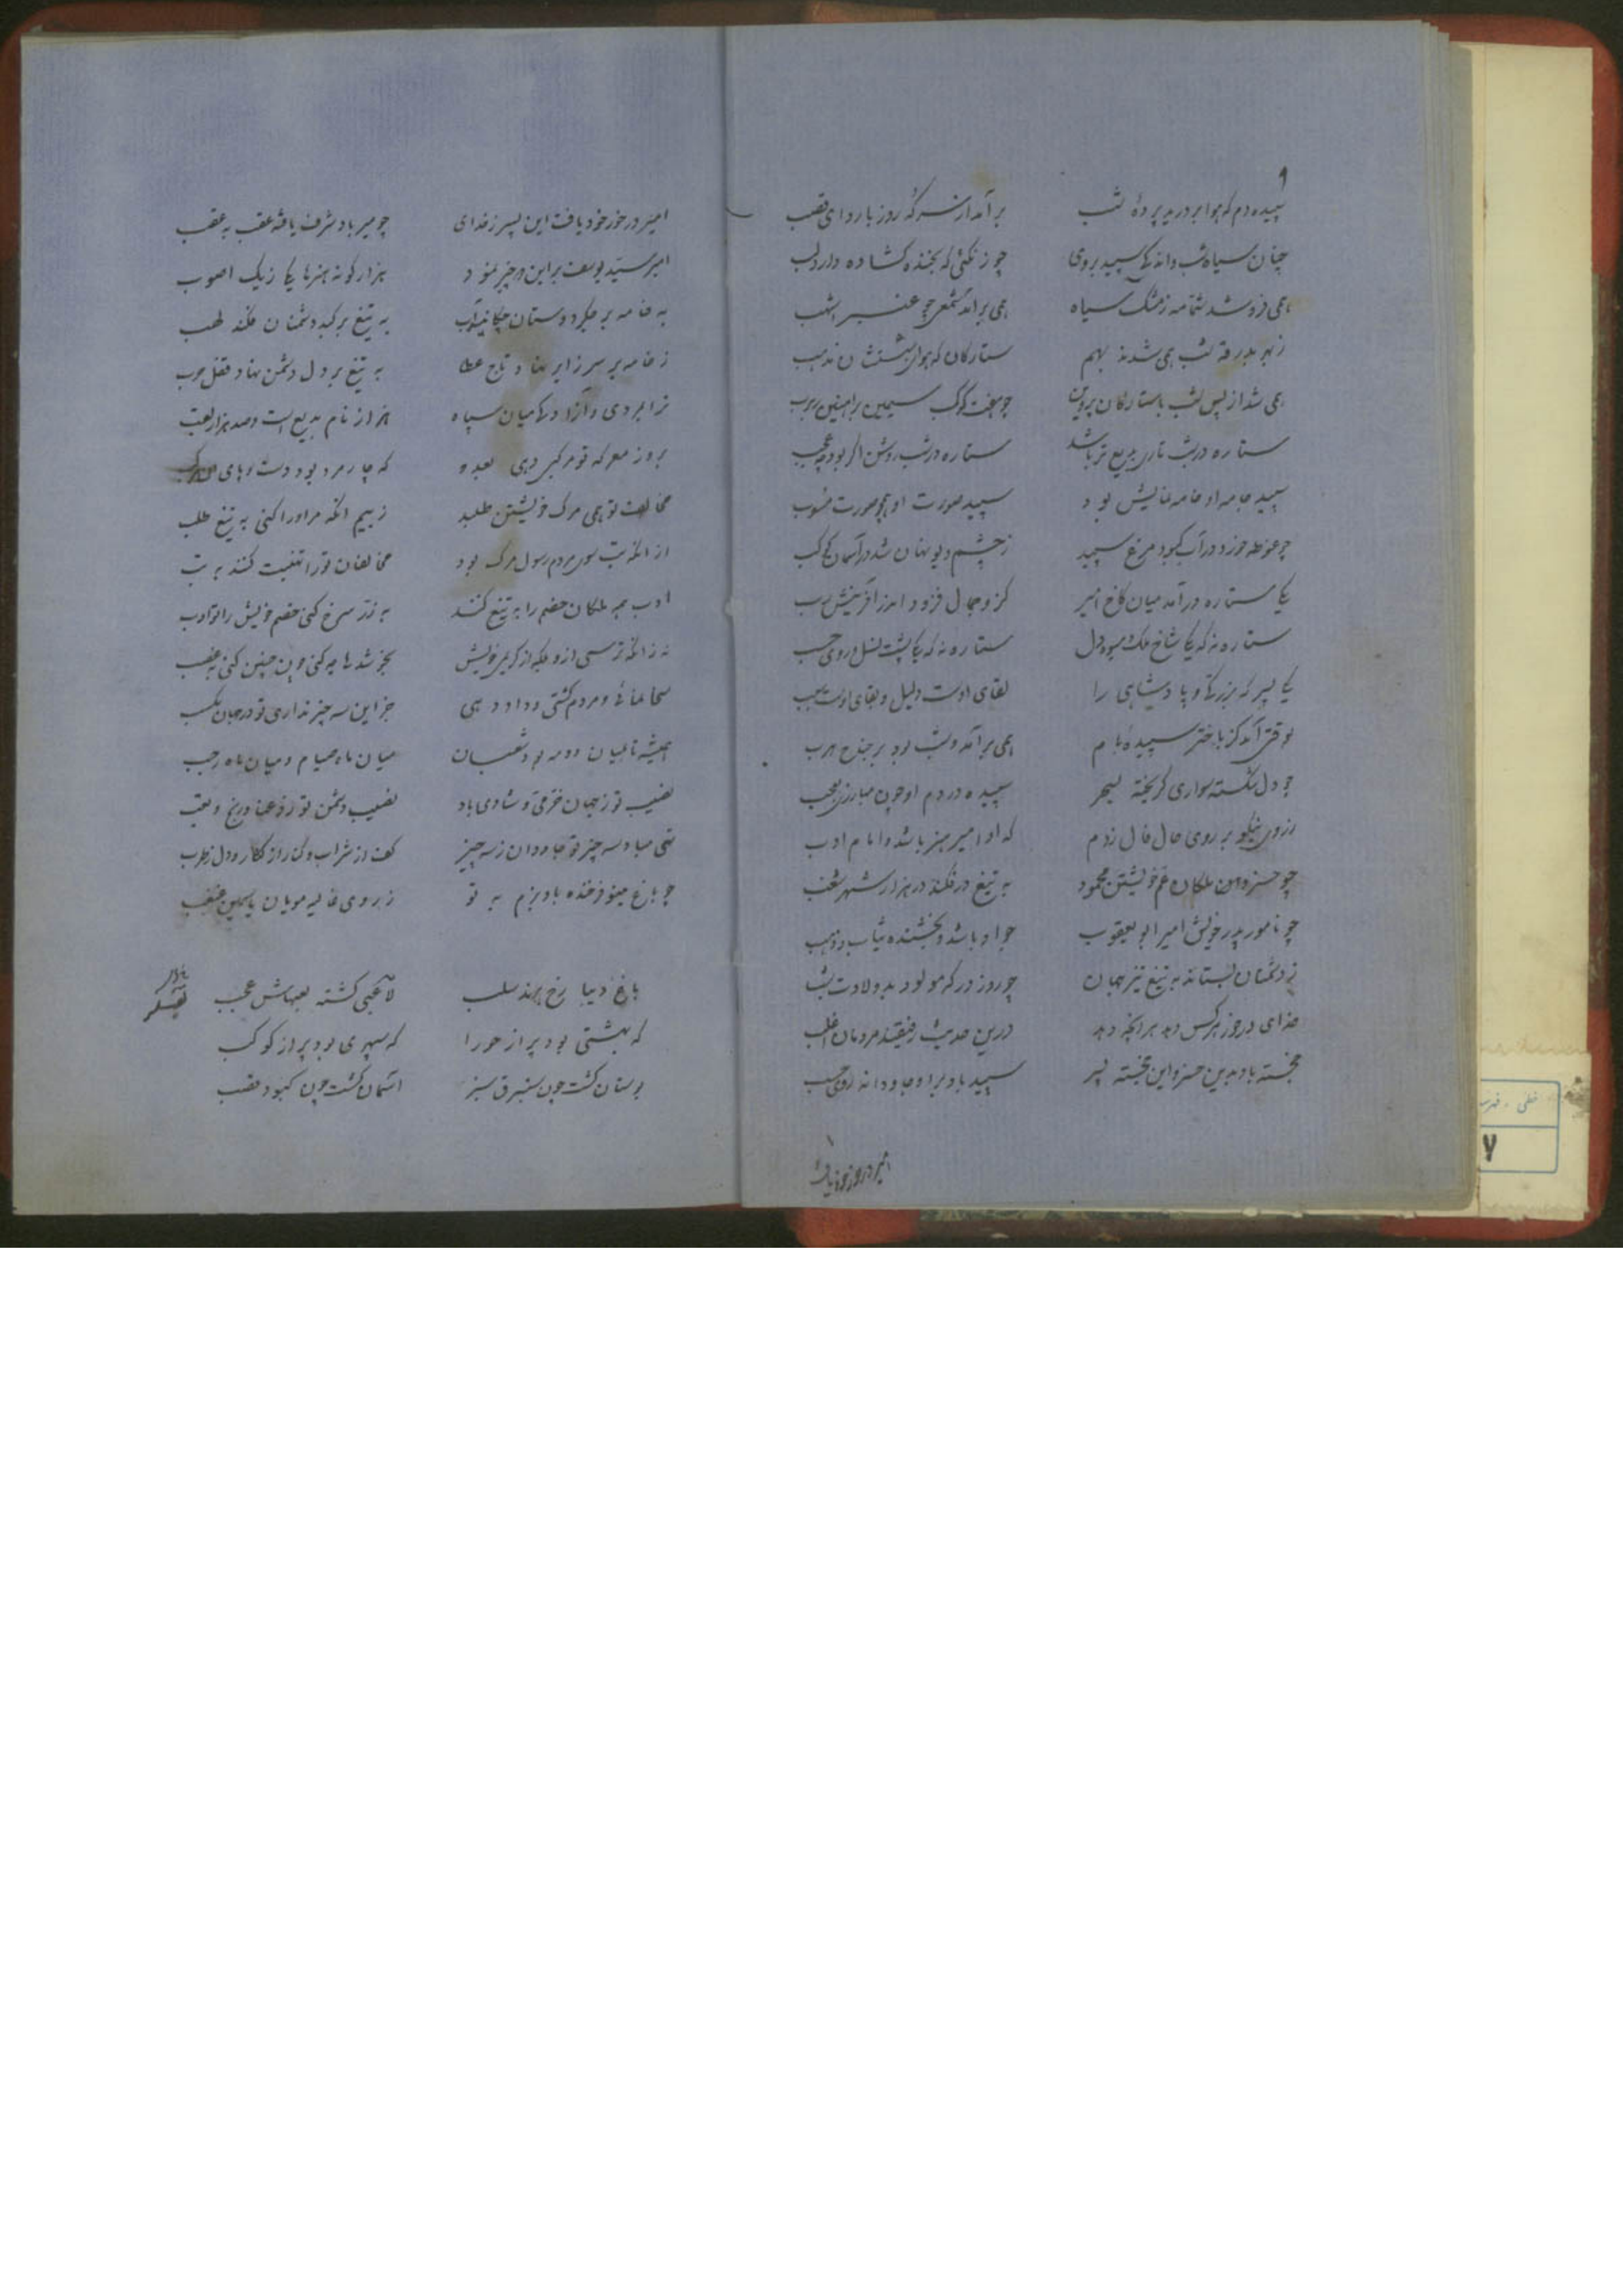 ۹
سپیده دم که هوا بر درید پرده شب
برآمد از سر که روز با ردای قصب
چنان سیاه شب و اندکی سپید بروی
چو زنگئی که بخنده گشاده دارد لب
همی فروشد شمامه ز مشک سیاه
همی برآمد شمعی چو عنبر اشهب
ز بهر بدرقه شب همی شدند بهم
ستارگان که هوا را
همی شد از پس شب با ستارگان پروین
چو هفت کوکب سیمین بر
ستاره در شب تاری بدیع تر باشد
ستاره در شب روشن اگر بود چه عجب
سپید جامه او جامه نمایش بود
سپید صورت او همچو صورت
چو غوطه خورد در آب کبود مرغ سپید
ز چشم دیو نهان شد در آسمان کوکب
یکی ستاره در آمد میان کاخ امیر
کزو جمال فزود اندر آفرینش رب
ستاره نه که یکی شاخ ملک میوه دل
ستاره نه که یکی پشت نسل و روی حسب
یکی پسر که بزرگی و پادشاهی را
لقای اوست دلیل و بقای اوست سبب
بوقتی آمد کز باختر سپیده بام
همی برآمد و شب بود بر جناح هرب
چو دل شکسته سواری گریخته بسحر
سپیده در دم او چون مبارزی معجب
ز روی نیکو بر روی حال فال زدم
که او امیر هنر باشد و امام ادب
چو خسرو ملکان عم خویشتن محمود
به تیغ در فکند در هزار شهر شغب
چو نامور پدر خویش امیر ابو یعقوب
جواد باشد و بخشنده ثیاب و ذهب
ز دشمنان بستاند به تیغ تیز جهان
چو روز درگه مولود بد ولادت شب
خدای در خور هر کس دهد هر آنچه دهد
درین حدیث رفیقند مردمان اغلب
خجسته باد بدین خسرو این خجسته پسر
سپید باد برو جاودانه روی حسب
امیر در خور خود یافت
امیر در خور خود یافت این پسر ز خدای
چو میر باد شرف یافته عقب به عقب
امیر سید یوسف برین دو چیز نمود
هزار گونه هنرها یکی ز یک اصوب
به خامه بر جگر دوستان چکانید آب
به تیغ بر کبد دشمنان فکند لهب
ز خامه بر سر زایر نهاد تاج عطا
به تیغ بر دل دشمن نهاد قفل حرب
ترا بمردی و آزادگی میان سپاه
هزار نام بدیع است و صد هزار لقب
بروز معرکه تو مرگبی دهی بعدو
که چار مرد بود دست و پای آن
مخالفت تو همی مرگ خویشتن طلبد
ز بیم آنکه مر او را کنی به تیغ طلب
از آنکه تب سوی مردم رسول مرگ بود
مخالفان تو را تهنیت کنند به تب
ادب همه ملکان خصم را به تیغ کنند
به زر سرخ کنی خصم خویش را تو ادب
نه زانکه ترسی از و بلکه از کریمی خویش
بخر شدها چه کنی چون چنین کنی به غضب
سخا نمائی و مردم کشی و داد دهی
جز این سه چیز نداری تو در جهان مکسب
همیشه تا بمیان دو مه بود شعبان
میان ماه صیام و میان ماه رجب
نصیب تو ز جهان خرمی و شادی باد
نصیب دشمن تو رنج و تعب
تهی مباد سه چیز تو جاودان ز سه چیز
کف از شراب و کنار از نگار و دل ز طرب
چو باغ مینو فرخنده باد بزم به تو
ز روی غالیه مویان یاسمین غبغب
باغ دیبا رخ پرند سلب
لاعبی گشته لعبهاش عجب
که بهشتی بود پر از حورا
که سپهری بود پر از کوکب
بوستان گشت چون ستبرق سبز
آسمان گشت چون کبود قصب